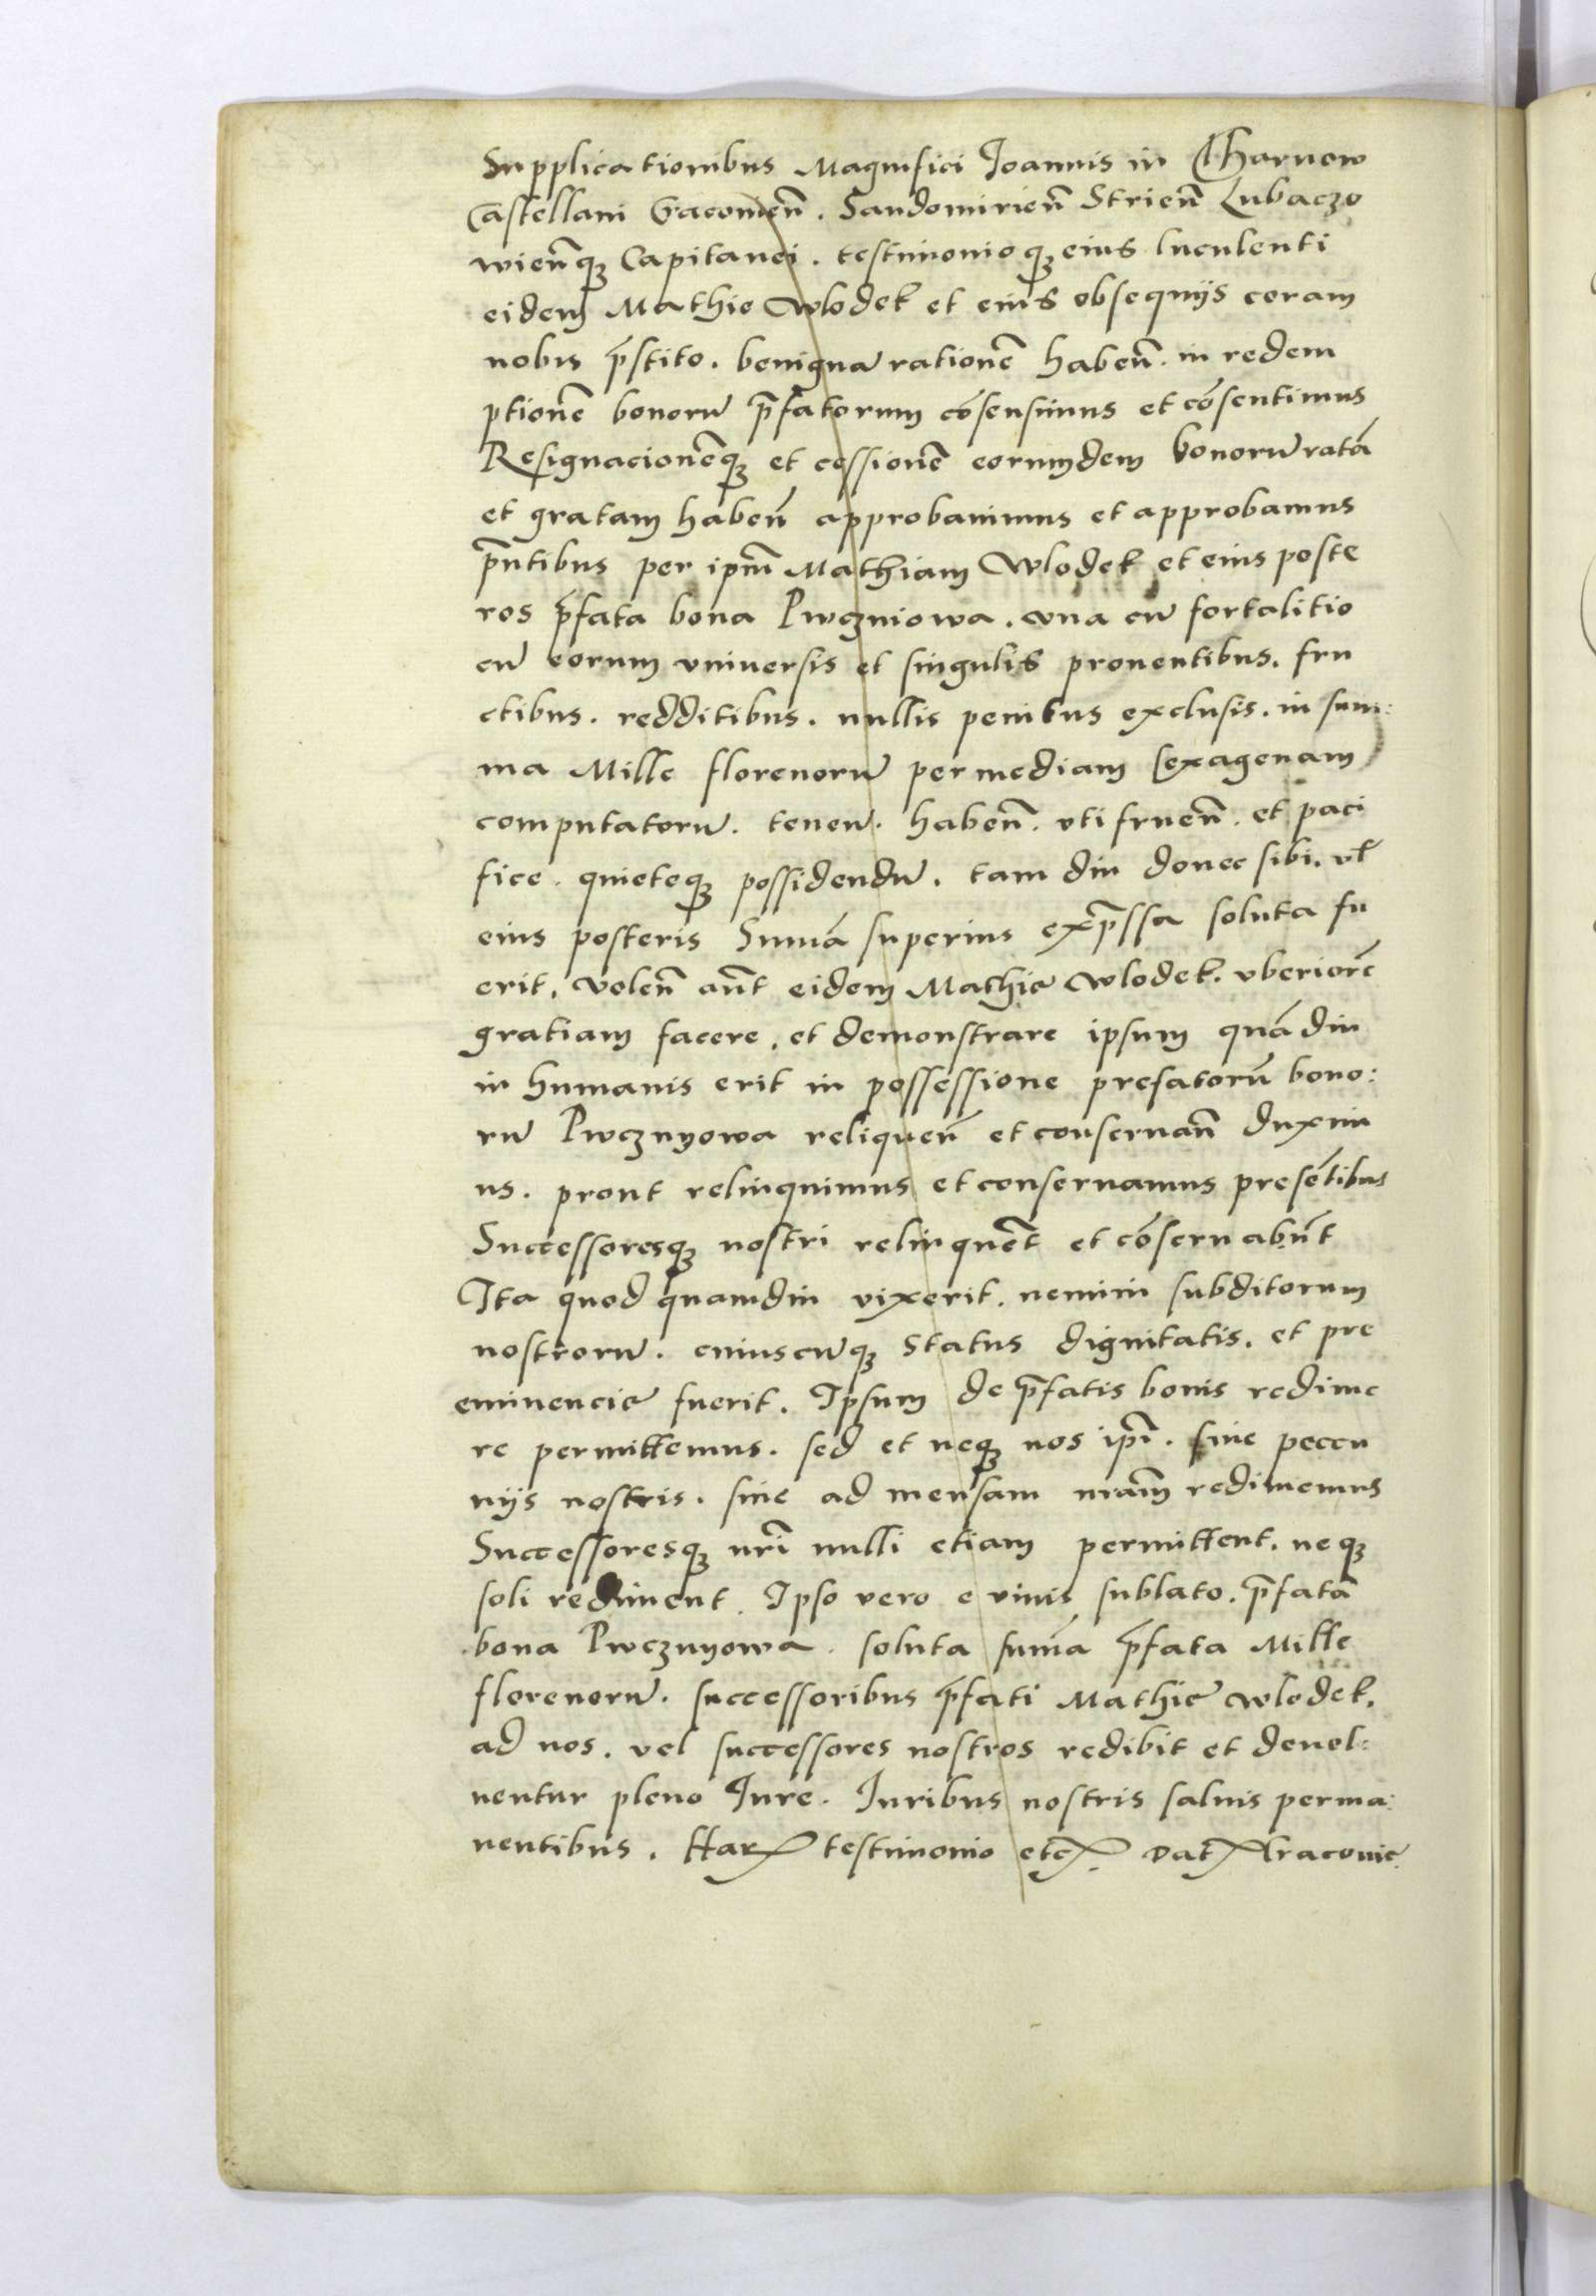 Supplicationibus Magnifici Joannis in Tharnow
Castellani Gracovien̄. Sandomirien̄ Strien̄ Lubaczo
wien̄q; Capitanei. testimonioq; eius luculenti
eidem Mathie Wlodek et eius obsequijs coram
nobis p̄stito. benignā rationē haben̄. in redem
ptionē bonorū p̄fatorum cōsensimus et cōsentimus
Resignacionēq; et cessionē eorumdem bonorū ratā
et gratam haben̄ approbavimus et approbamus
p̄ntibus per ipm̄ Mathiam Wlodek et eius poste
ros p̄fata bona Pwczniowa. vna cū fortalitio
cū eorum vniuersis et singulis prouentibus. fru
ctibus. redditibus. nullis penitus exclusis. in sum:
ma Mille florenorū per mediam sexagenam
computatorū. tenen̄. haben̄. vtifruen̄. et paci
fice. quieteq; possidendū. tam diu donec sibi. vl̄
eius posteris Sum̄a superius exp̄ssa soluta fu
erit. volen̄ aūt eidem Mathie Wlodek. vberiorē
gratiam facere. et demonstrare ipsum quādiu
in humanis erit in possessione prefatorū bono:
rū Pwcznyowa reliquen̄ et conseruan̄ duxim
us. prout relinquimus et conseruamus presētibus
Successoresq; nostri relinquēt et cōseruabūt
Ita quod quamdiu vixerit. nemini subditorum
nostrorū. cuiuscūq; status dignitatis. et pre
eminencie fuerit. Ipsum de p̄fatis bonis redime
re permittemus. sed et neq; nos ipī. siue peccu
nijs nostris. siue ad mensam nram̄ redimemus
Successoresq; nrī nulli etiam permittent. neq;
soli rediment. Ipso vero e viuis sublato. p̄fatā
bona Pwcznyowa. soluta sum̄a p̄fata Mille
florenorū. successoribus p̄fati Mathie Wlodek.
ad nos. vel successores nostros redibit et deuol:
uentur pleno Iure. Iuribus nostris saluis perma:
nentibus. Har testimonio etc. Dat Cracouie.